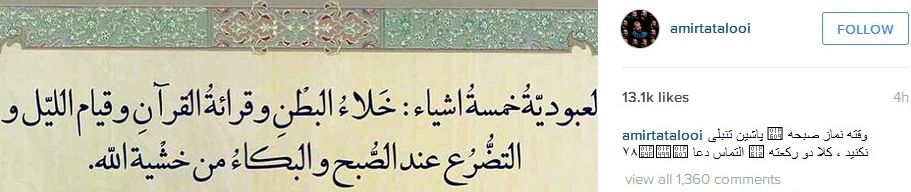 لعبوديّةُ خمسةُ اشياء: خَلاءُ البَطْنِ و قرائةُ القرآنِ و قيام الليّل و
التضُّرُع عند الصُّبح و البكاءُ من خشْيةِ اللّه.
amirtatalooi
FOLLOW
13.1k likes
4h
amirtatalooi وقته نماز صبحه پاشین تنبلی
نکنید ، کلا دو رکعته التماس دعا ۷۸
view all 1,360 comments